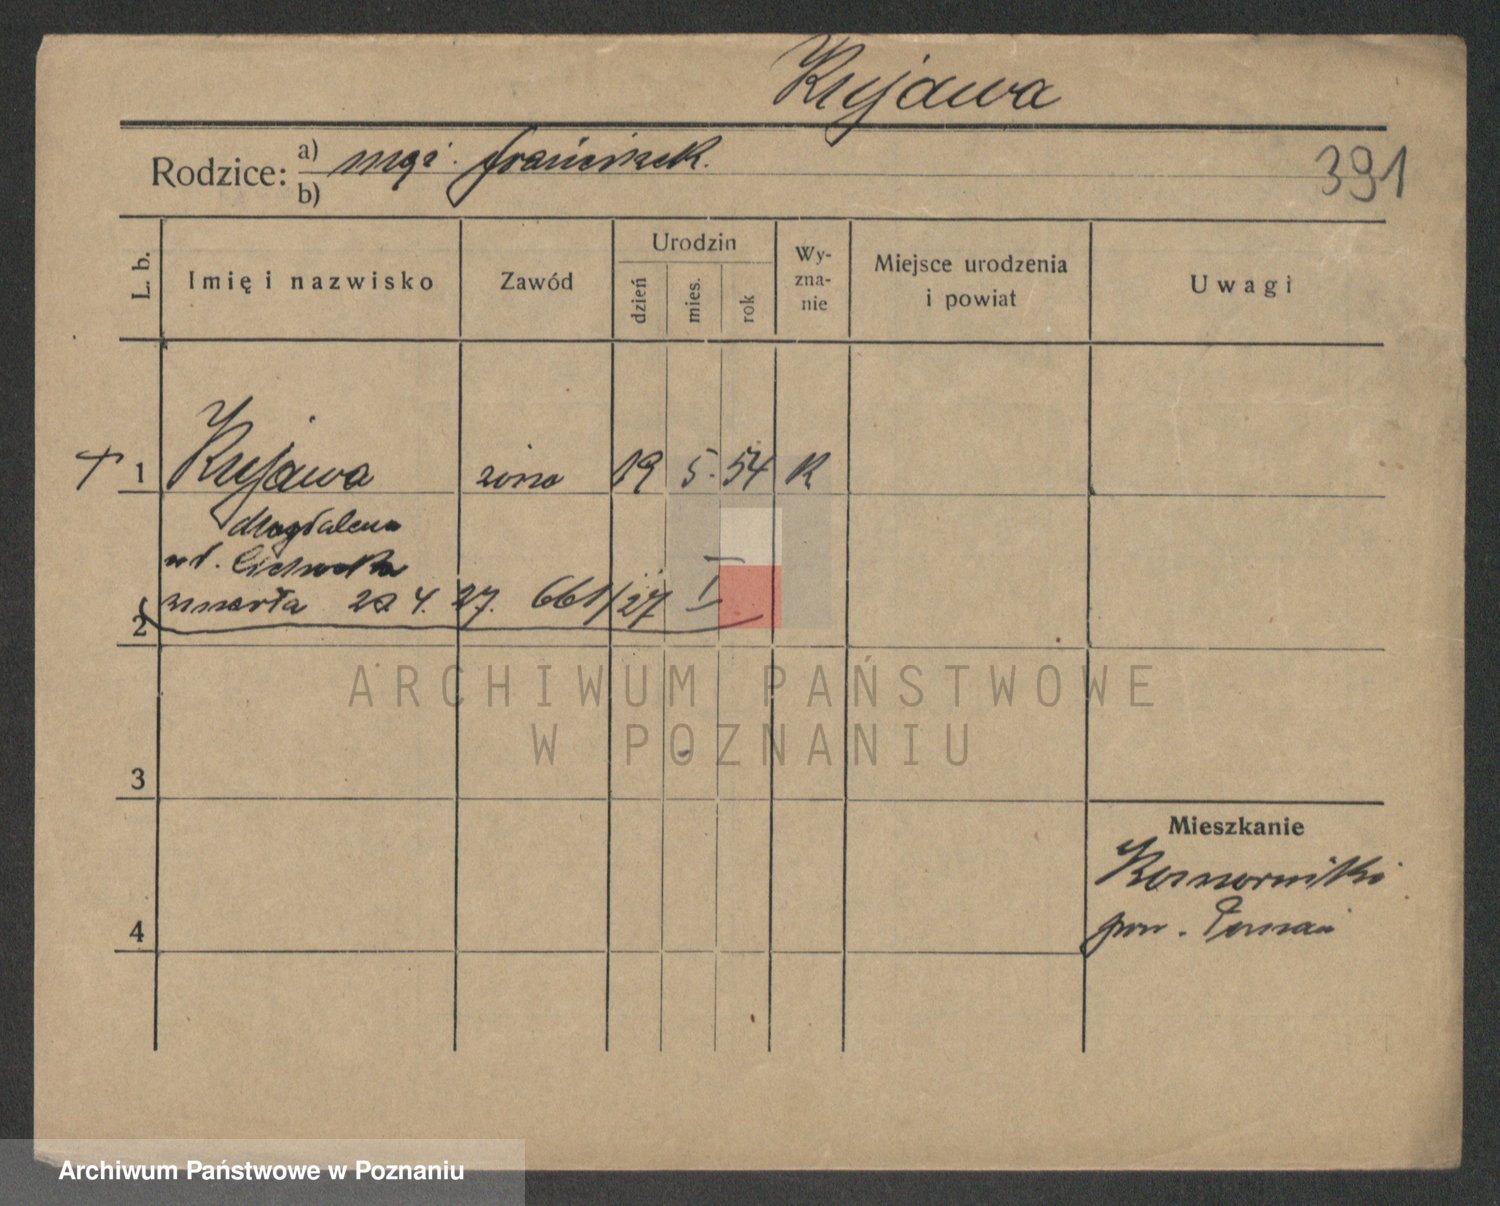 Kujawa
Rodzice: a) mąż. Franciszek.
b)
391
L. b. Imię i nazwisko Zawód Urodzin dzień mies. rok Wy-zna-nie Miejsce urodzenia i powiat Uwagi
+ 1 Kujawa żona 19 5. 54 K
Magdalena
ur.
zmarła 22 4. 27. 661/27 I
2
ARCHIWUM PAŃSTWOWE
W POZNANIU
3
Mieszkanie
Komorniki
4
pow. Poznań
Archiwum Państwowe w Poznaniu